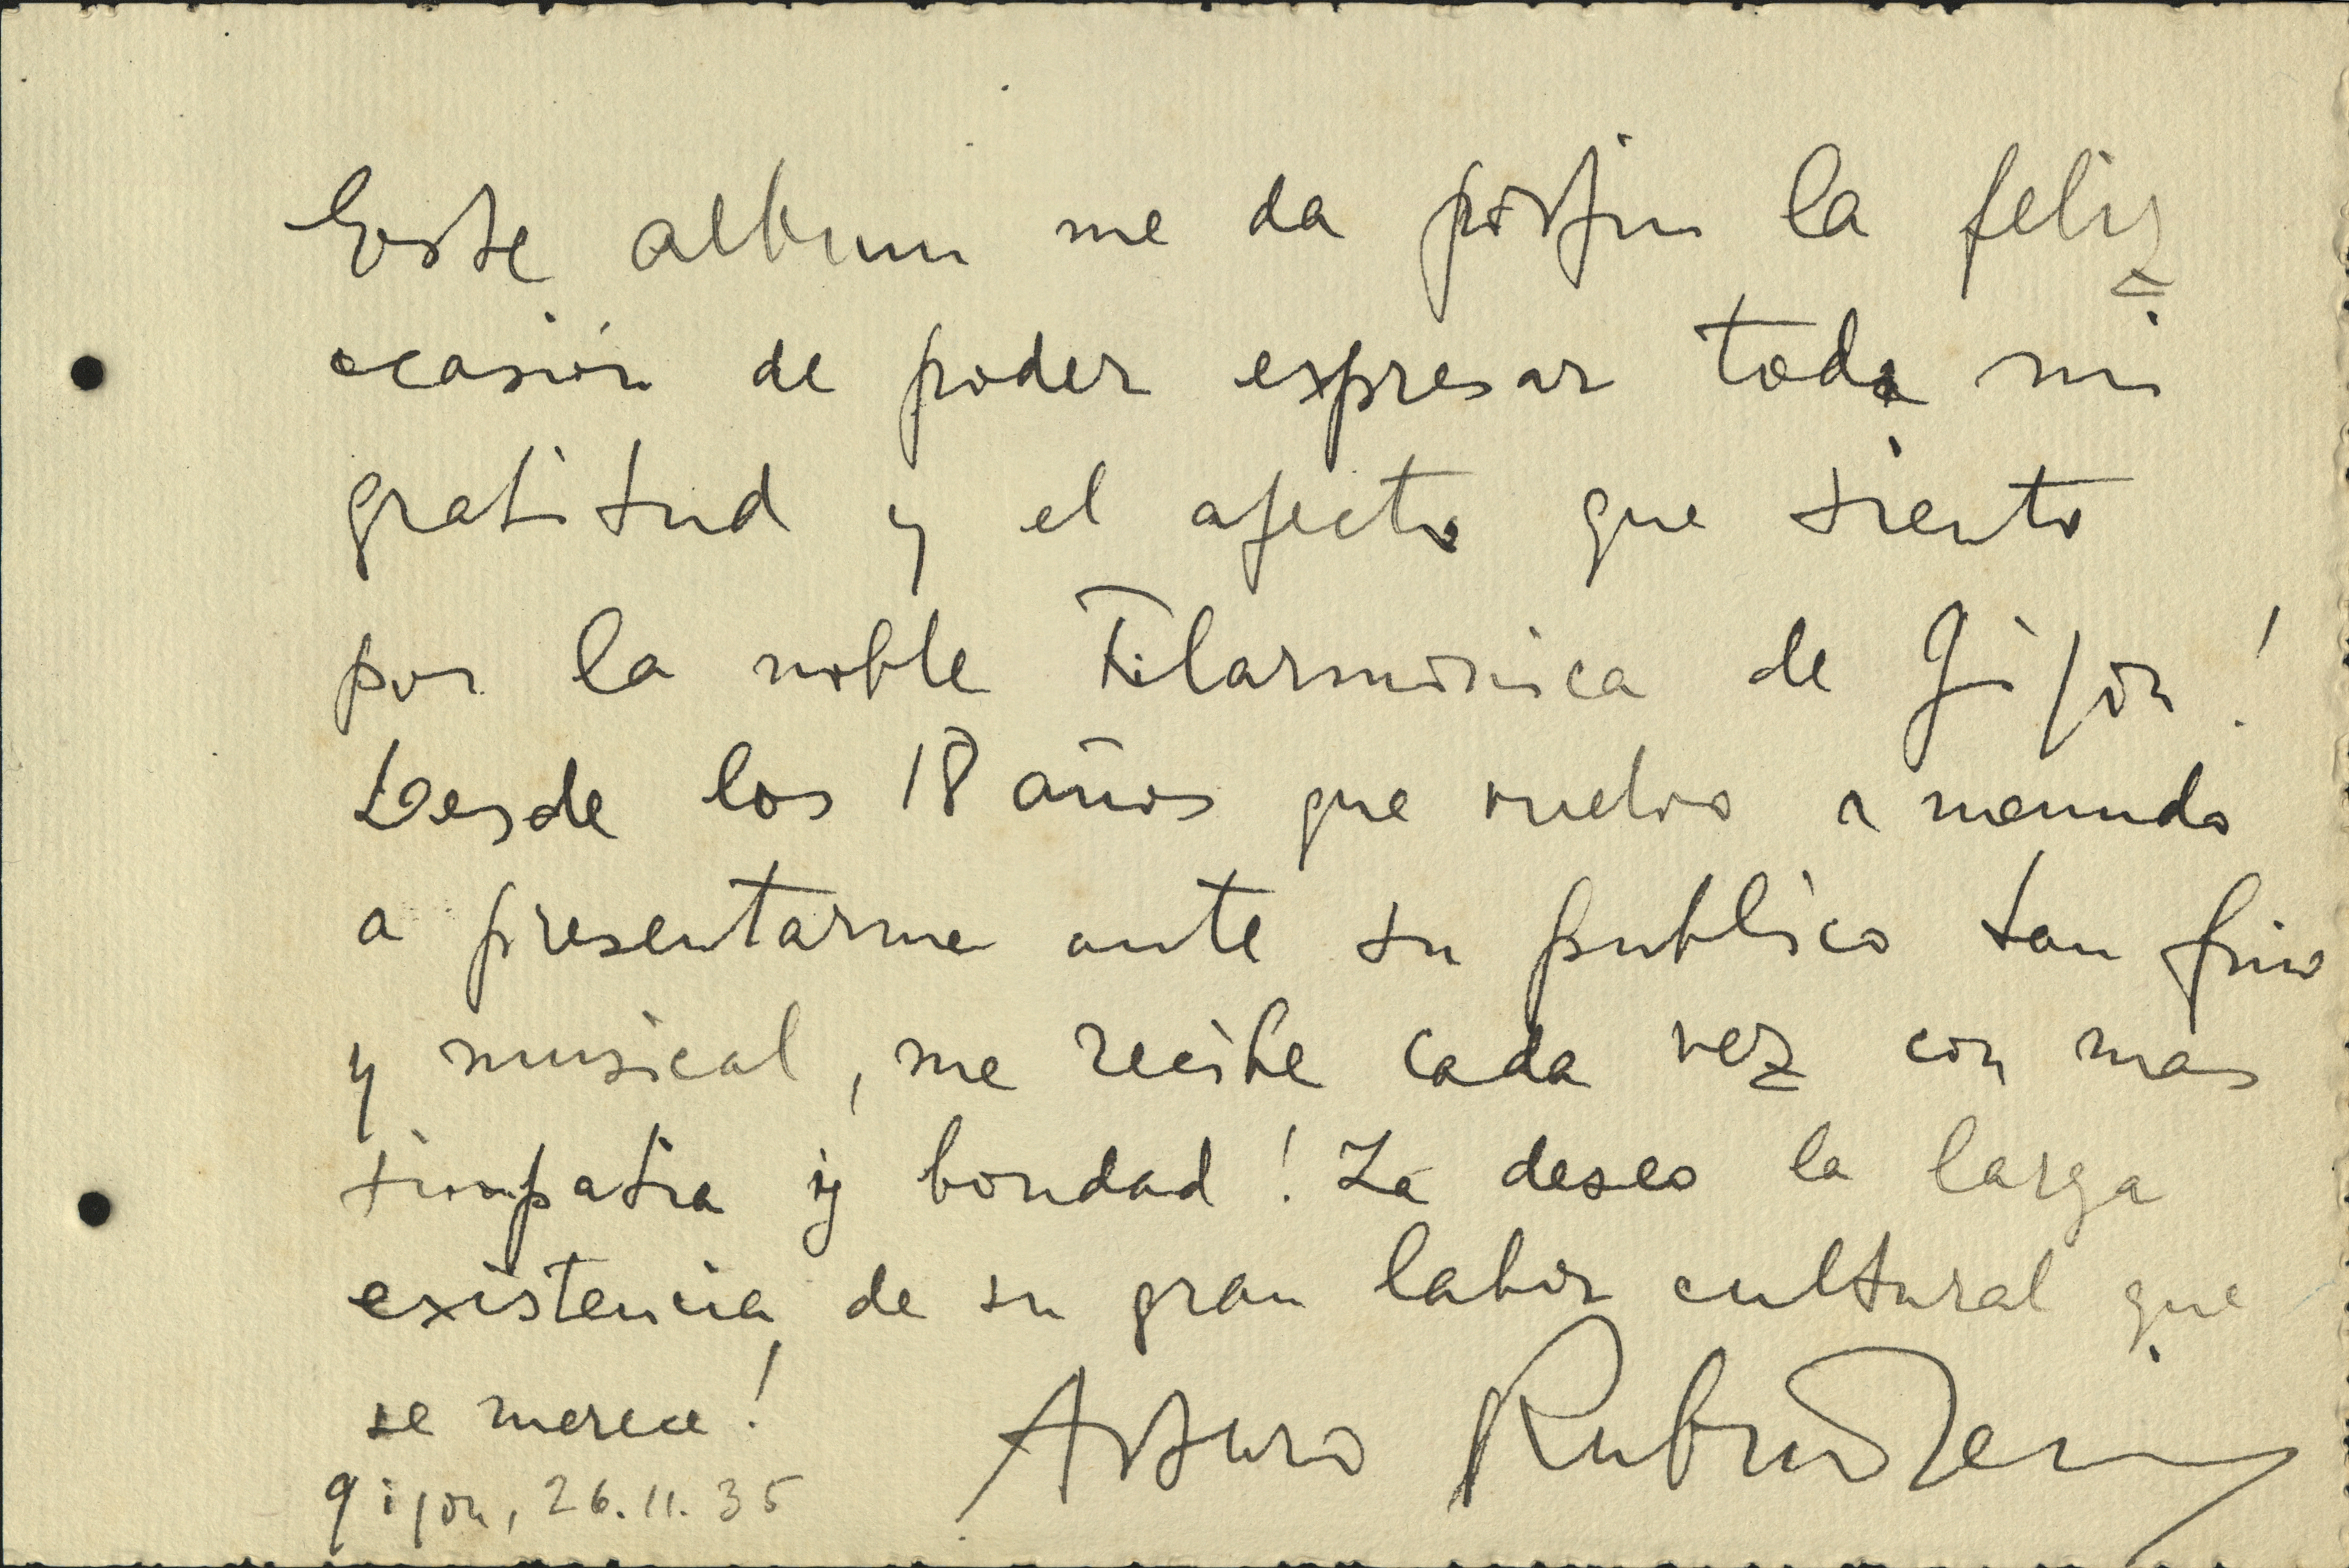 Este album me da porfin la feliz
ocasión de poder expresar toda mi
gratitud y el afecto que siento
por la noble Filarmónica de Gijón!
Desde los 18 años que vuelvo a menudo
a presentarme ante su publico tan fino
y musical, me recibe cada vez con mas
simpatia y bondad! La deseo la larga
existencia de su gran labor cultural que
se merece!
Arturo Rubinstein
Gijon, 26.11.35